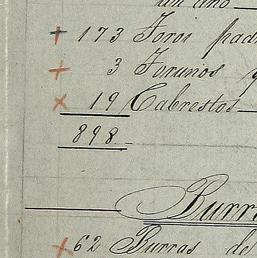 un año
+ 173 Toros pad
+ 3 Torunos y
x 19 Cabrestos
898.
Burr
x 62 Burras de